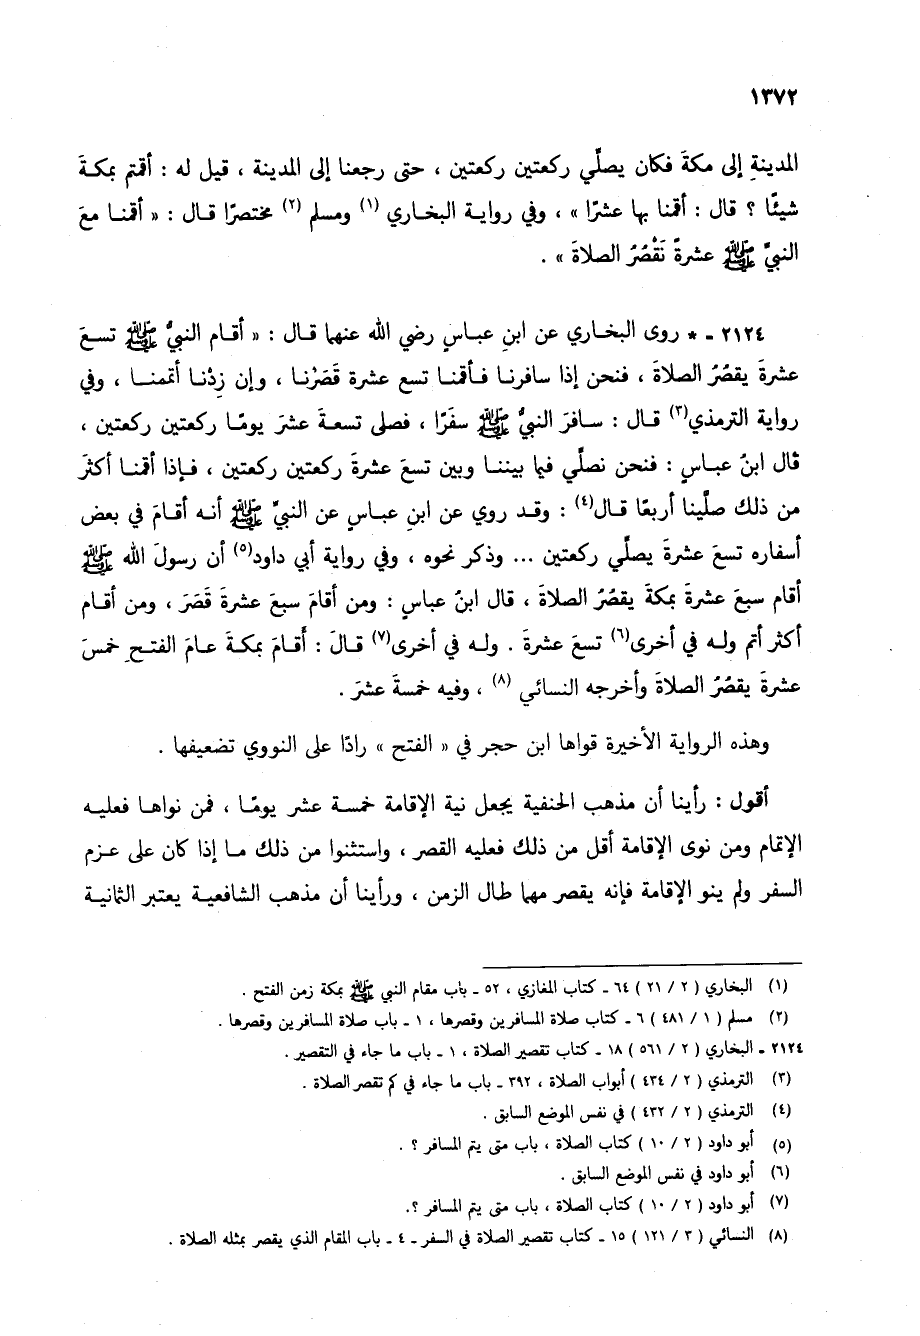 ١٣٧٢
المدينةِ إلى مكةَ فكان يصلِّي ركعتين ركعتين ، حتى رجعنا إلى المدينة ، قيل له : أقمتم بمكـةَ
شيئًا ؟ قال : أقمنا بها عشرًا » ، وفي روايـة البخـاري (١) ومسلم (٢) مختصرًا قـال : « أقمنـا معَ
النبيِّ ﷺ عشرةً نَقْصُرُ الصلاةَ » .
٢١٢٤ ـ * روى البخـاري عن ابنِ عبـاسٍ رضي الله عنهما قـال : « أقـام النبيُّ ﷺ تسـعَ
عشرةَ يقصُرُ الصلاةَ ، فنحن إذا سافرنـا فـأقمنـا تسع عشرة قَصَرْنـا ، وإن زِدْنـا أتممنـا ، وفي
رواية الترمذي(٣) قـال : سـافرَ النبيُّ ﷺ سفَرًا ، فصلى تسعـةَ عشرَ يومًـا ركعتين ركعتين ،
قال ابنُ عبـاسٍ : فنحن نصلِّي فيما بيننـا وبين تسعَ عشرةَ ركعتين ركعتين ، فـإذا أقمنـا أكثرَ
من ذلك صلَّينا أربعًا قـال(٤) : وقـد روي عن ابنِ عبـاسٍ عن النبيِّ ﷺ أنـه أقـامَ في بعض
أسفاره تسعَ عشرةَ يصلِّي ركعتين ... وذكر نحوه ، وفي رواية أبي داود(٥) أن رسولَ الله ﷺ
أقام سبعَ عشرةَ بمكةَ يقصُرُ الصلاةَ ، قال ابنُ عباسٍ : ومن أقامَ سبعَ عشرةَ قَصَرَ ، ومن أقـام
أكثر أتم ولـه في أخرى(٦) تسعَ عشرةَ . ولـه في أخرى(٧) قـالَ : أَقـامَ بمكـةَ عـامَ الفتـحِ خمسَ
عشرةَ يقصُرُ الصلاةَ وأخرجه النسائي (٨) ، وفيه خمسةَ عشرَ .
وهذه الرواية الأخيرة قواها ابن حجر في « الفتح » رادًا على النووي تضعيفها .
أقول : رأينا أن مذهب الحنفية يجعل نية الإقامة خمسة عشر يومًـا ، فمن نواهـا فعليـه
الإتمام ومن نوى الإقامة أقل من ذلك فعليه القصر ، واستثنوا من ذلك مـا إذا كان على عـزم
السفر ولم ينو الإقامة فإنه يقصر مهما طال الزمن ، ورأينا أن مذهب الشافعيـة يعتبر الثمانيـة
(١) البخاري ( ٢ / ٢١ ) ٦٤ ـ كتاب المغازي ، ٥٢ ـ باب مقام النبي ﷺ بمكة زمن الفتح .
(٢) مسلم ( ١ / ٤٨١ ) ٦ ـ كتاب صلاة المسافرين وقصرها ، ١ ـ باب صلاة المسافرين وقصرها .
٢١٢٤ ـ البخاري ( ٢ / ٥٦١ ) ١٨ ـ كتاب تقصير الصلاة ، ١ ـ باب ما جاء في التقصير .
(٣) الترمذي ( ٢ / ٤٣٤ ) أبواب الصلاة ، ٣٩٢ ـ باب ما جاء في كم تقصر الصلاة .
(٤) الترمذي ( ٢ / ٤٣٢ ) في نفس الموضع السابق .
(٥) أبو داود ( ٢ / ١٠ ) كتاب الصلاة ، باب متى يتم المسافر ؟ .
(٦) أبو داود في نفس الموضع السابق .
(٧) أبو داود ( ٢ / ١٠ ) كتاب الصلاة ، باب متى يتم المسافر ؟.
(٨) النسائي ( ٣ / ١٢١ ) ١٥ ـ كتاب تقصير الصلاة في السفر ـ ٤ ـ باب المقام الذي يقصر بمثله الصلاة .